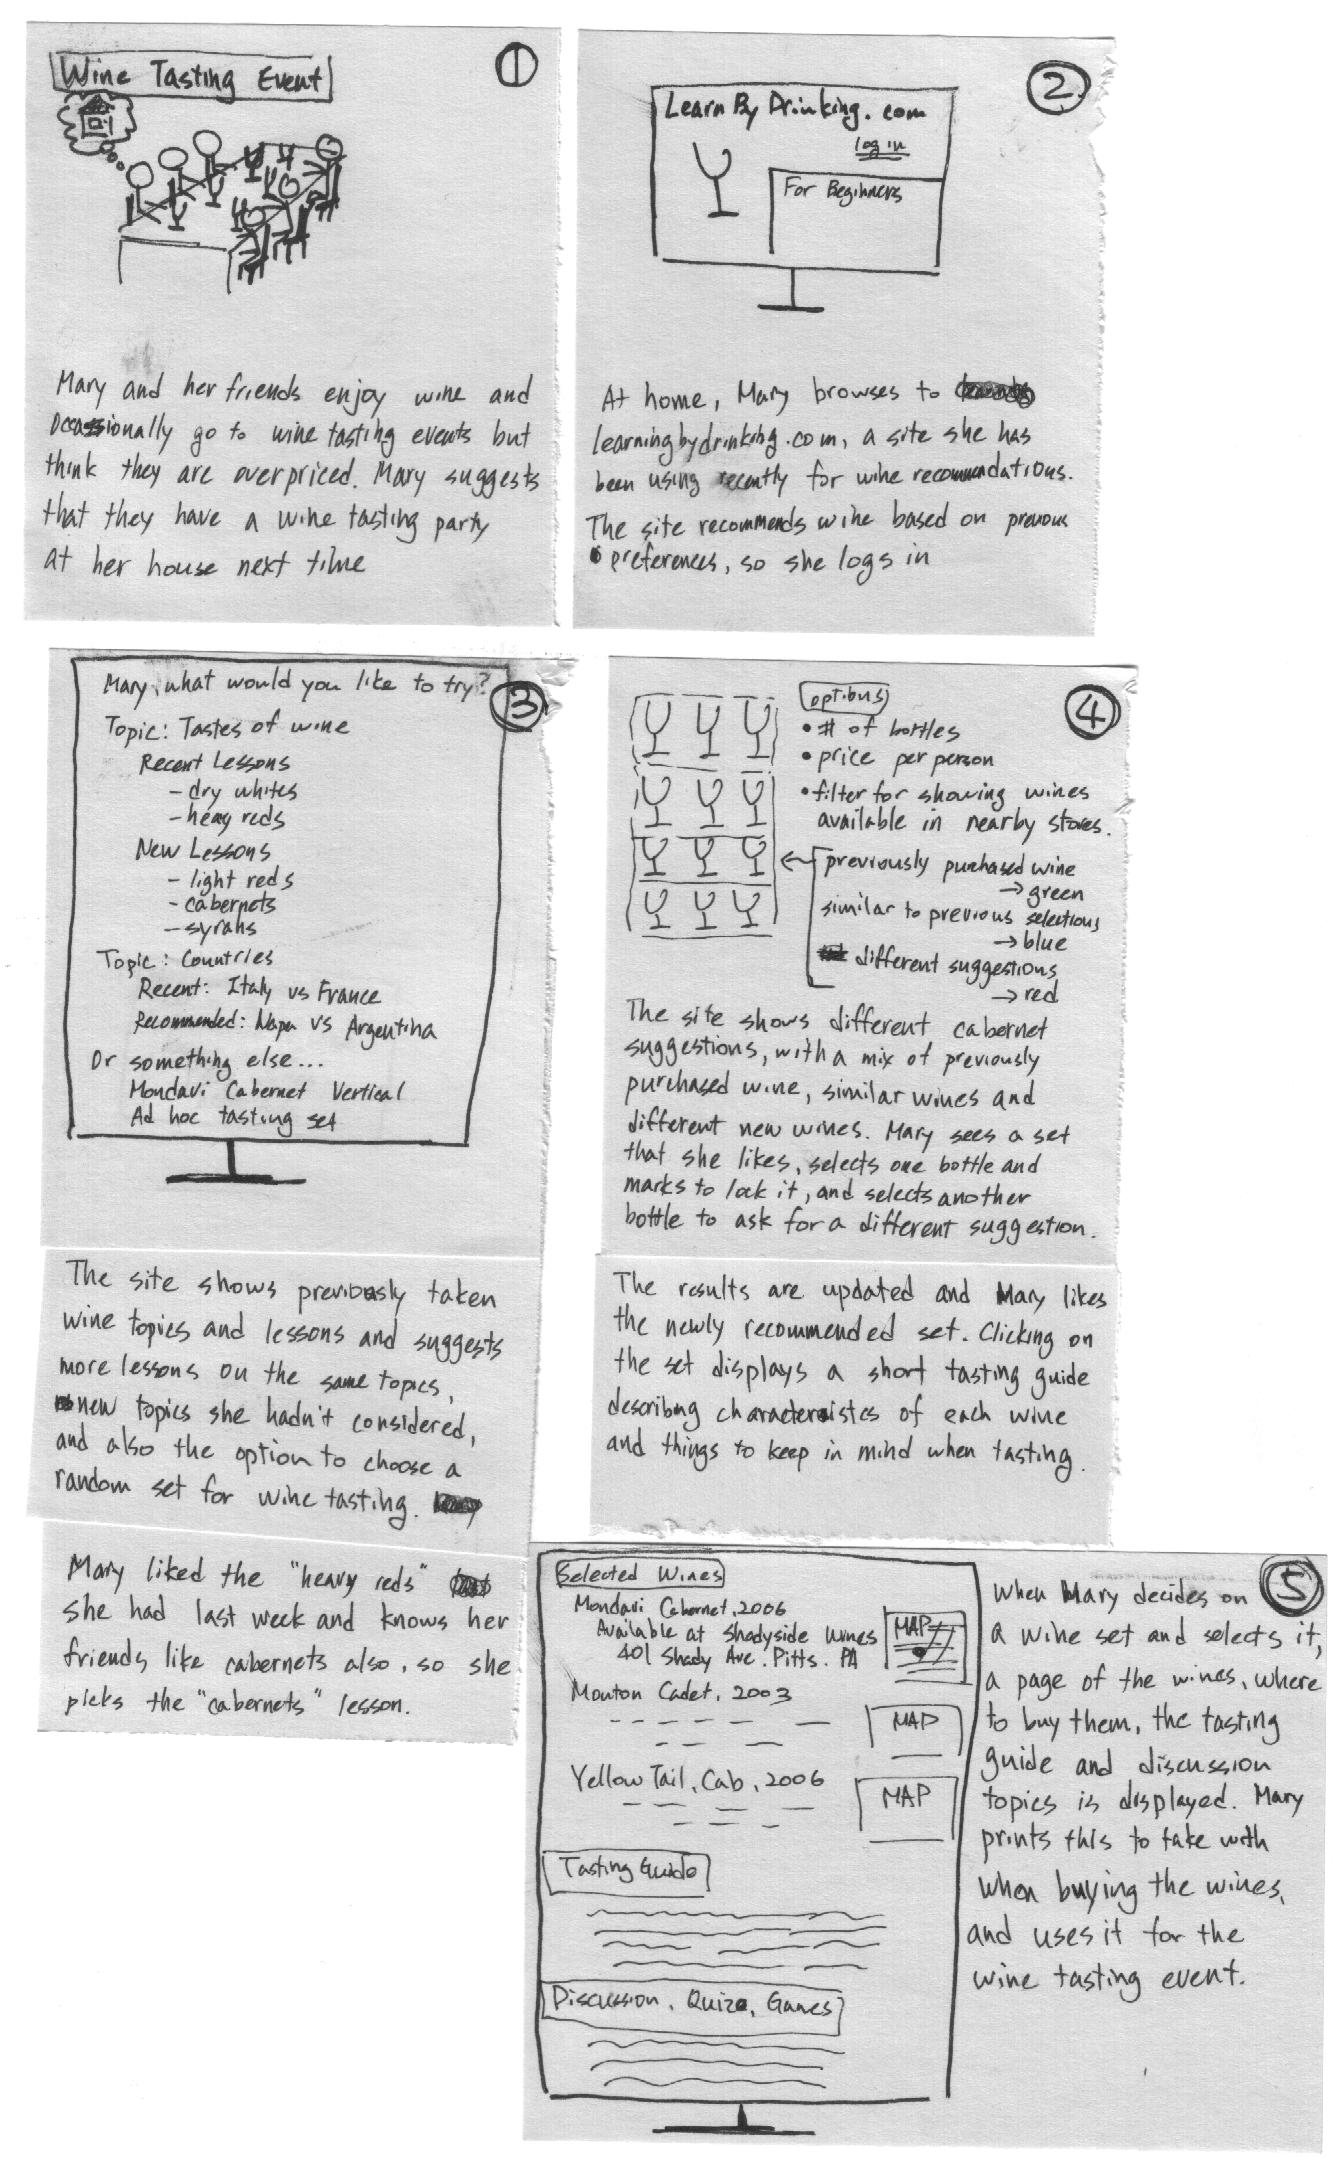 Wine Tasting Event
1
Mary and her friends enjoy wine and
occassionally go to wine tasting events but
think they are overpriced. Mary suggests
that they have a wine tasting party
at her house next time
2
Learn By Drinking.com
log in
For Beginners
At home, Mary browses to
learningbydrinking.com, a site she has
been using recently for wine recommendations.
The site recommends wine based on previous
preferences, so she logs in
3
Mary, what would you like to try?
Topic: Tastes of wine
Recent Lessons
- dry whites
- heavy reds
New Lessons
- light reds
- cabernets
- syrahs
Topic: Countries
Recent: Italy vs France
Recommended: Napa vs Argentina
Or something else...
Mondavi Cabernet Vertical
Ad hoc tasting set
The site shows previously taken
wine topics and lessons and suggests
more lessons on the same topics,
new topics she hadn't considered,
and also the option to choose a
random set for wine tasting.
Mary liked the "heavy reds"
she had last week and knows her
friends like cabernets also, so she
picks the "cabernets" lesson.
4
options
• # of bottles
• price per person
• filter for showing wines
available in nearby stores.
previously purchased wine
→ green
similar to previous selections
→ blue
different suggestions
→ red
The site shows different cabernet
suggestions, with a mix of previously
purchased wine, similar wines and
different new wines. Mary sees a set
that she likes, selects one bottle and
marks to lock it, and selects another
bottle to ask for a different suggestion.
The results are updated and Mary likes
the newly recommended set. Clicking on
the set displays a short tasting guide
describing characteristcs of each wine
and things to keep in mind when tasting.
5
Selected Wines
Mondavi Cabernet, 2006
Available at Shadyside Wines
401 Shady Ave. Pitts. PA
MAP
Mouton Cadet, 2003
MAP
Yellow Tail, Cab, 2006
MAP
Tasting Guide
Discussion, Quize, Games
When Mary decides on
a wine set and selects it,
a page of the wines, where
to buy them, the tasting
guide and discussion
topics is displayed. Mary
prints this to take with
when buying the wines,
and uses it for the
wine tasting event.